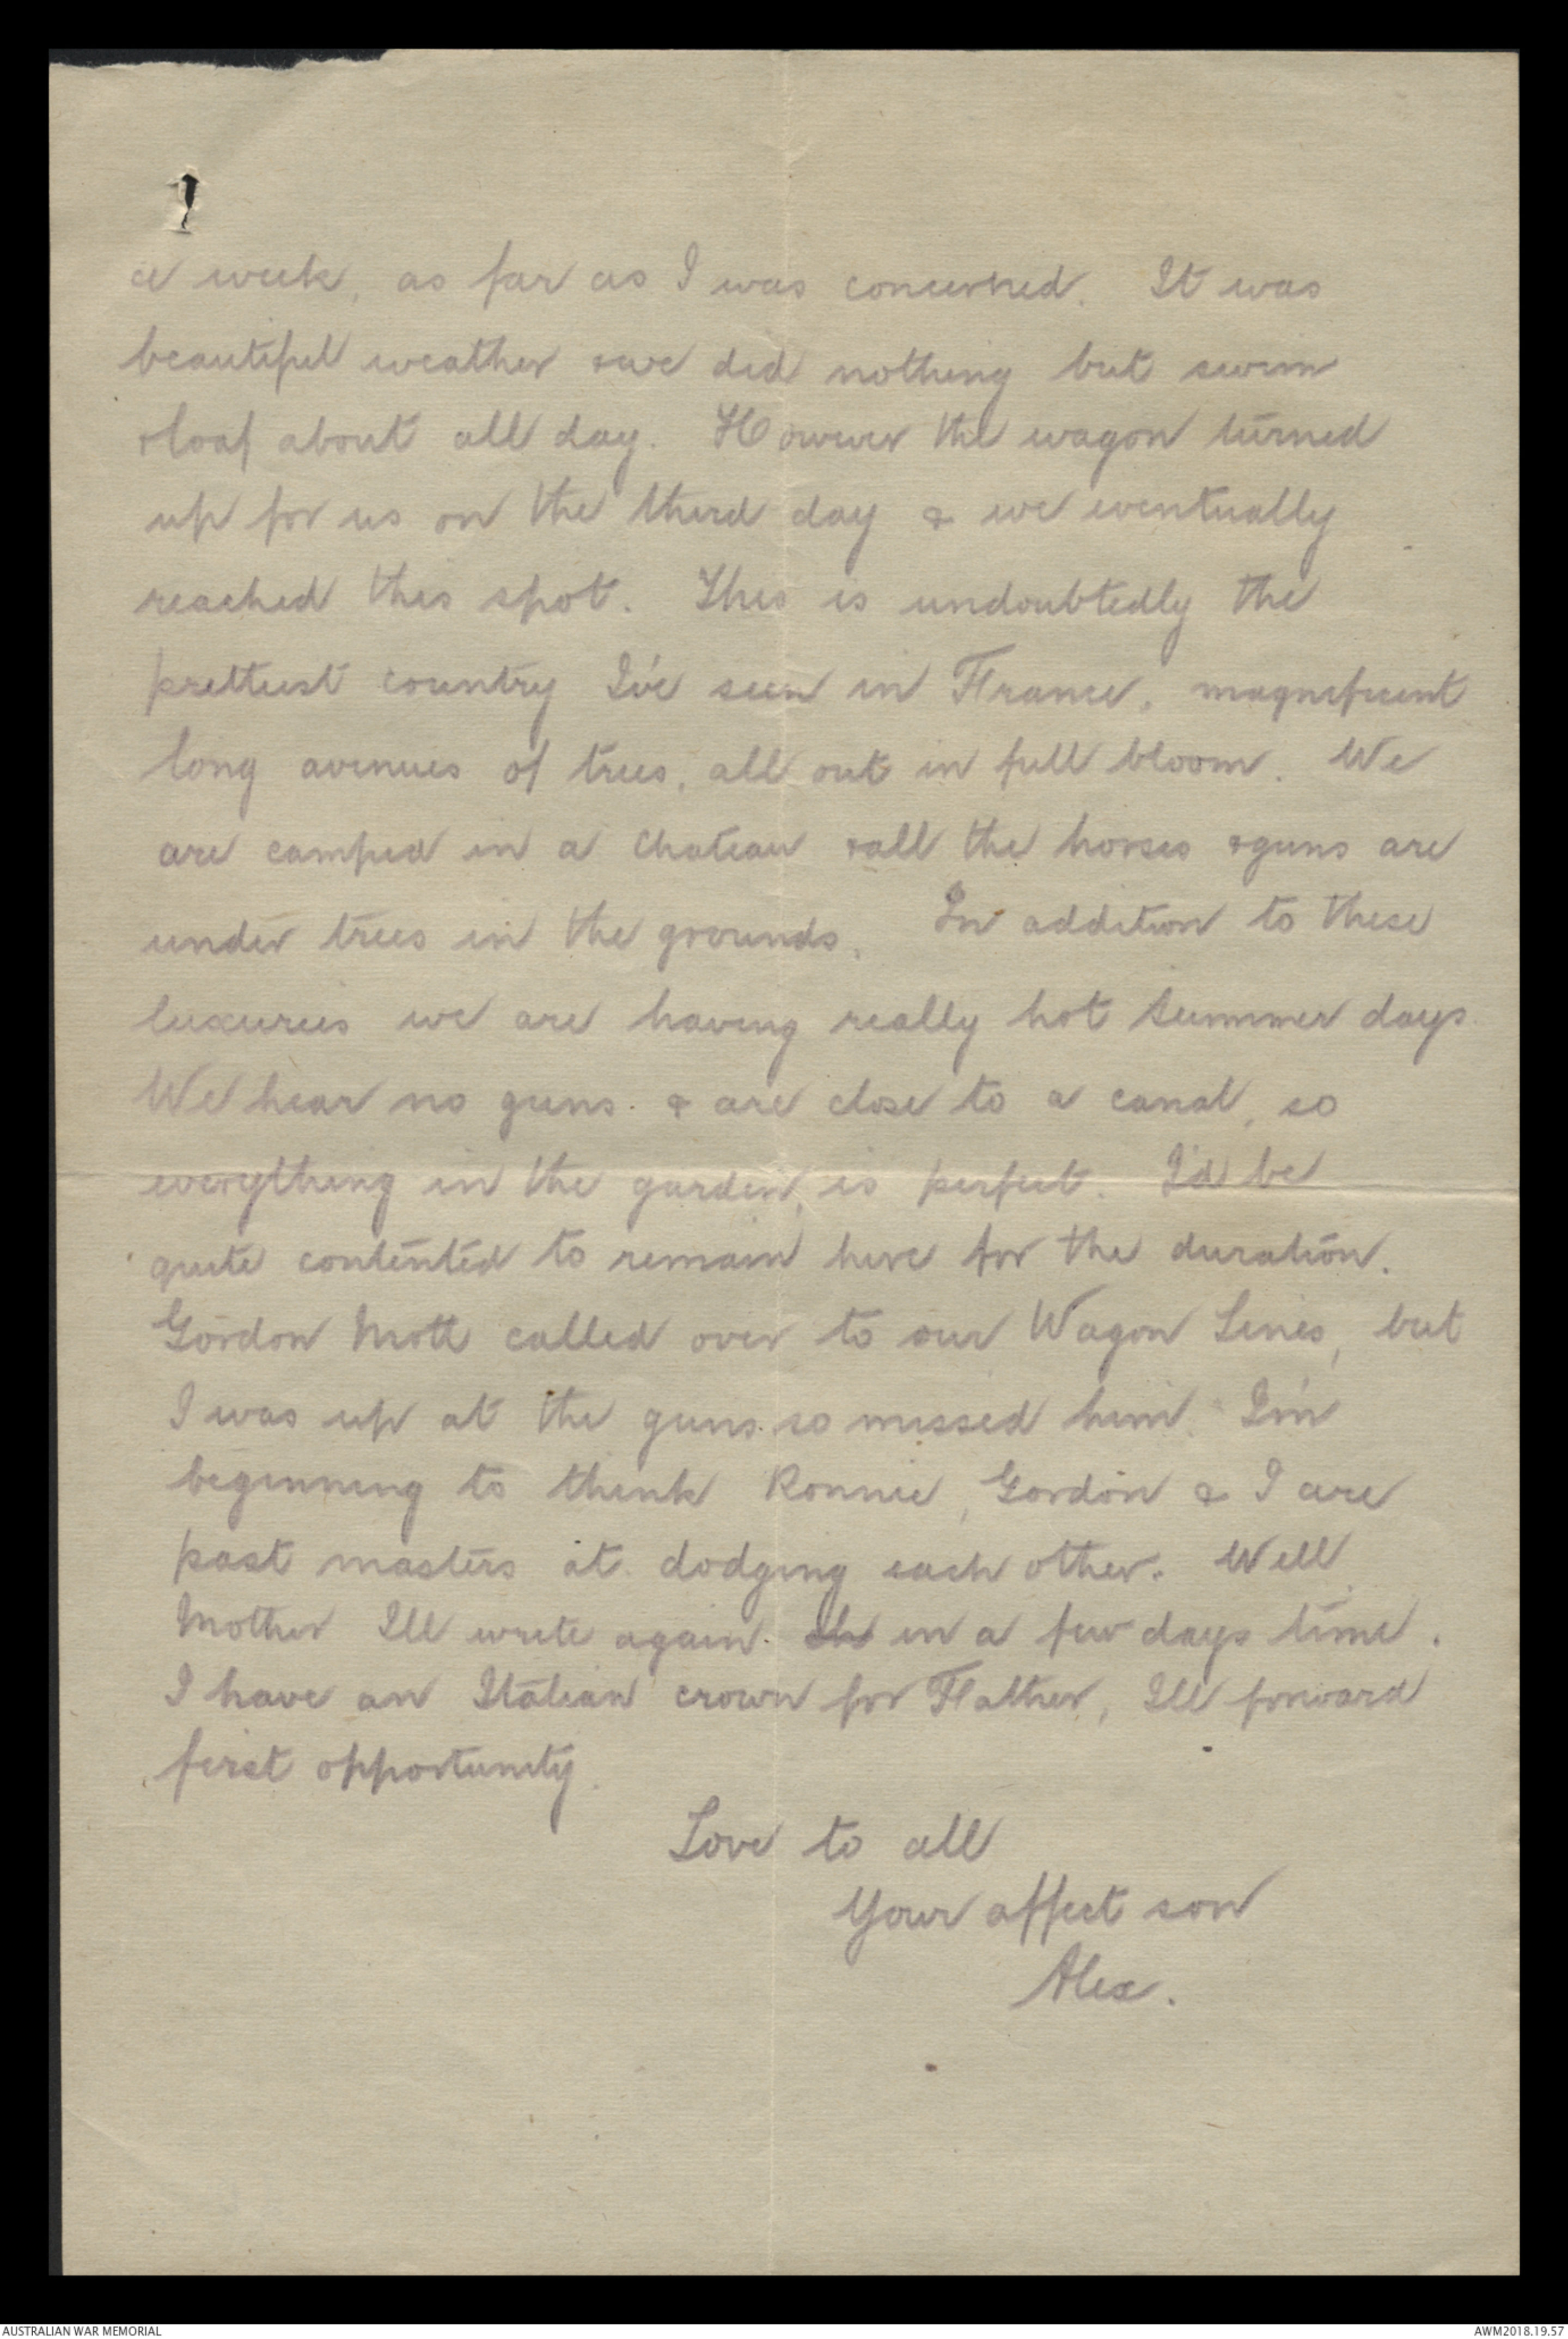 a week, as far as I was concerned. It was
beautiful weather & we did nothing but swim
& loaf about all day. However the wagon turned
up for us on the third day & we eventually
reached this spot. This is undoubtedly the
prettiest country I've seen in France, magnificent
long avenues of trees, all out in full bloom. We
are camped in a chateau & all the horses & guns are
under trees in the grounds. In addition to these
luxuries we are having really hot summer days.
We hear no guns. & are close to a canal, so
everything in the garden, is perfect. I'd be
quite contented to remain here for the duration.
Gordon Mott called over to our Wagon Lines, but
I was up at the guns so missed him. I'm
beginning to think Ronnie, Gordon & I are
past masters at dodging each other. Well
Mother I'll write again in a few days time.
I have an Italian crown for Father, I'll forward
first opportunity.
Love to all
Your affect son
Alex.
AUSTRALIAN WAR MEMORIAL
AWM2018.19.57